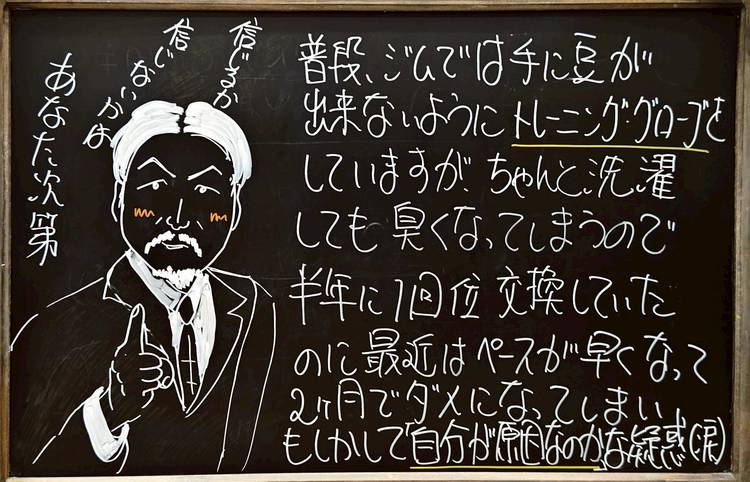 信じるか
信じないかは
あなた次第
普段、ジムでは手に豆が
出来ないようにトレーニング・グローブを
していますが、ちゃんと洗濯
しても臭くなってしまうので
半年に1回位交換していた
のに最近はペースが早くなって
2ヶ月でダメになってしまい、
もしかして自分が原因なのかな疑惑(涙)